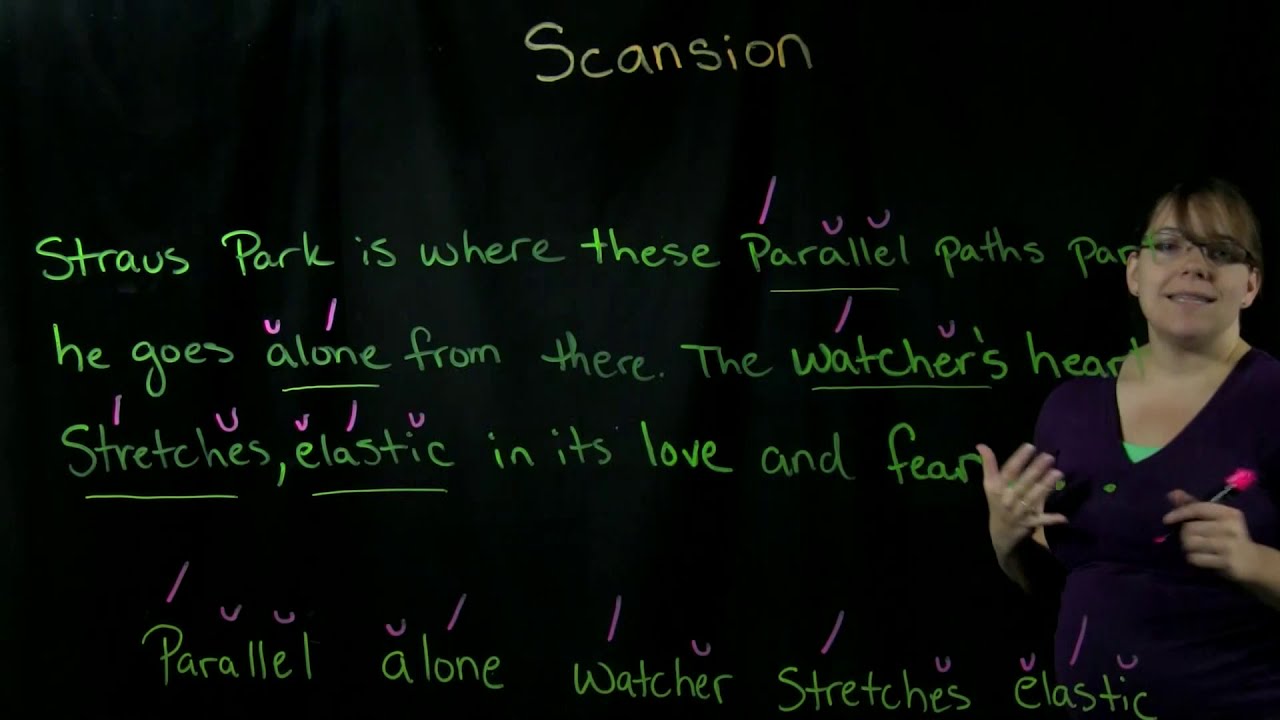 Scansion
Straus Park is where these Parallel paths
he goes alone from there. The watcher's heart
Stretches, elastic in its love and fear
Parallel alone watcher Stretches elastic